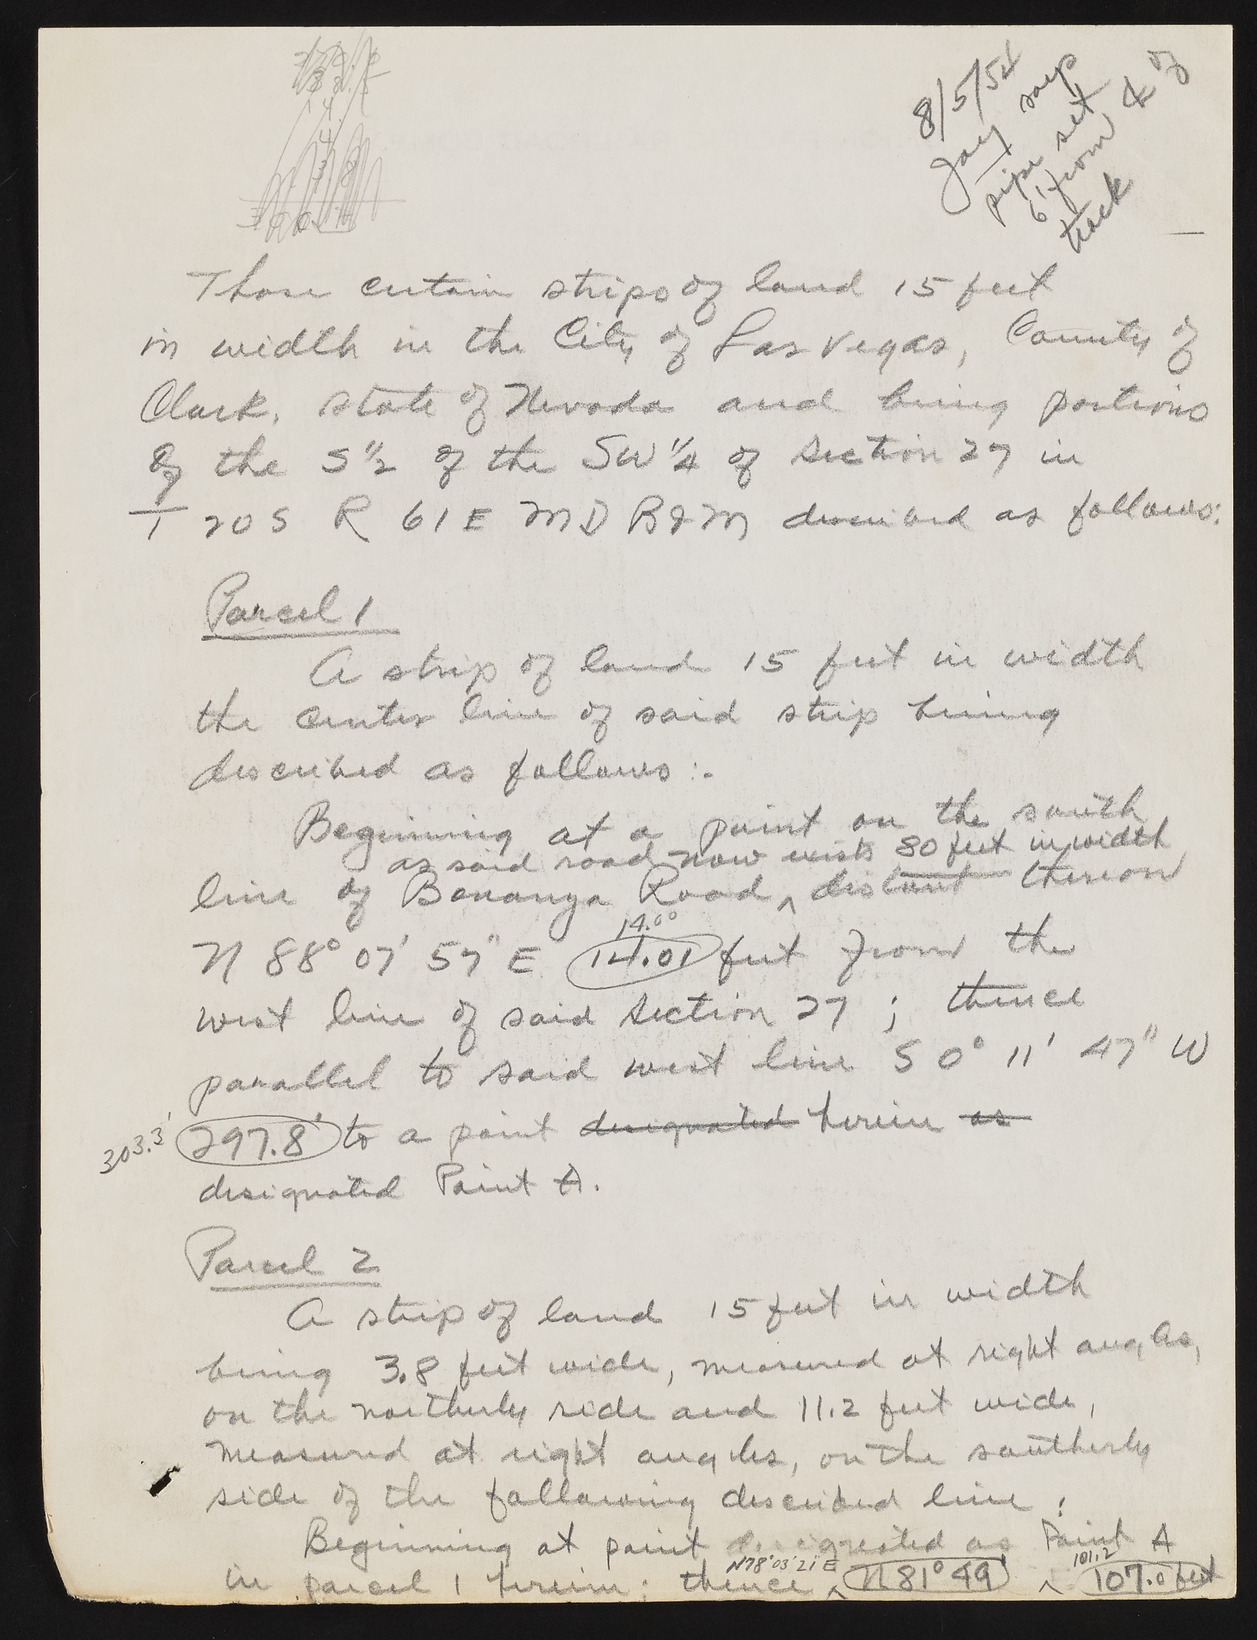 8/5/54
Jay says
pipe set
6' from ℄ of
track
Those certain strips of land 15 feet
in width in the City of Las Vegas, County of
Clark, State of Nevada and being portions
of the S½ of the SW¼ of Section 27 in
T 20S R 61E MD B&M described as follows:
Parcel 1
A strip of land 15 feet in width
the center line of said strip being
described as follows:-
Beginning at a point on the south
as said road now exists 80 feet in width
line of Bonanza Road, ^ distant thereon
14.00
N 88° 07' 57" E 14.01 feet from the
west line of said Section 27; thence
parallel to said west line S 0° 11' 47" W
303.3' 297.8' to a point designated herein as
designated Point A.
Parcel 2
A strip of land 15 feet in width
being 3.8 feet wide, measured at right angles,
on the northerly side and 11.2 feet wide,
measured at right angles, on the southerly
side of the following described line:
Beginning at point designated as Point A
N78°03'21"E 101.2
in parcel 1 herein: thence ^ N 81° 49' ^ 107.0 feet